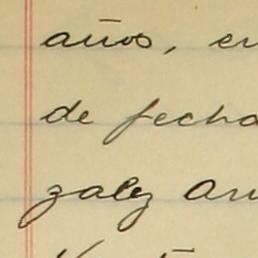 años, en
de fecha
zalez An